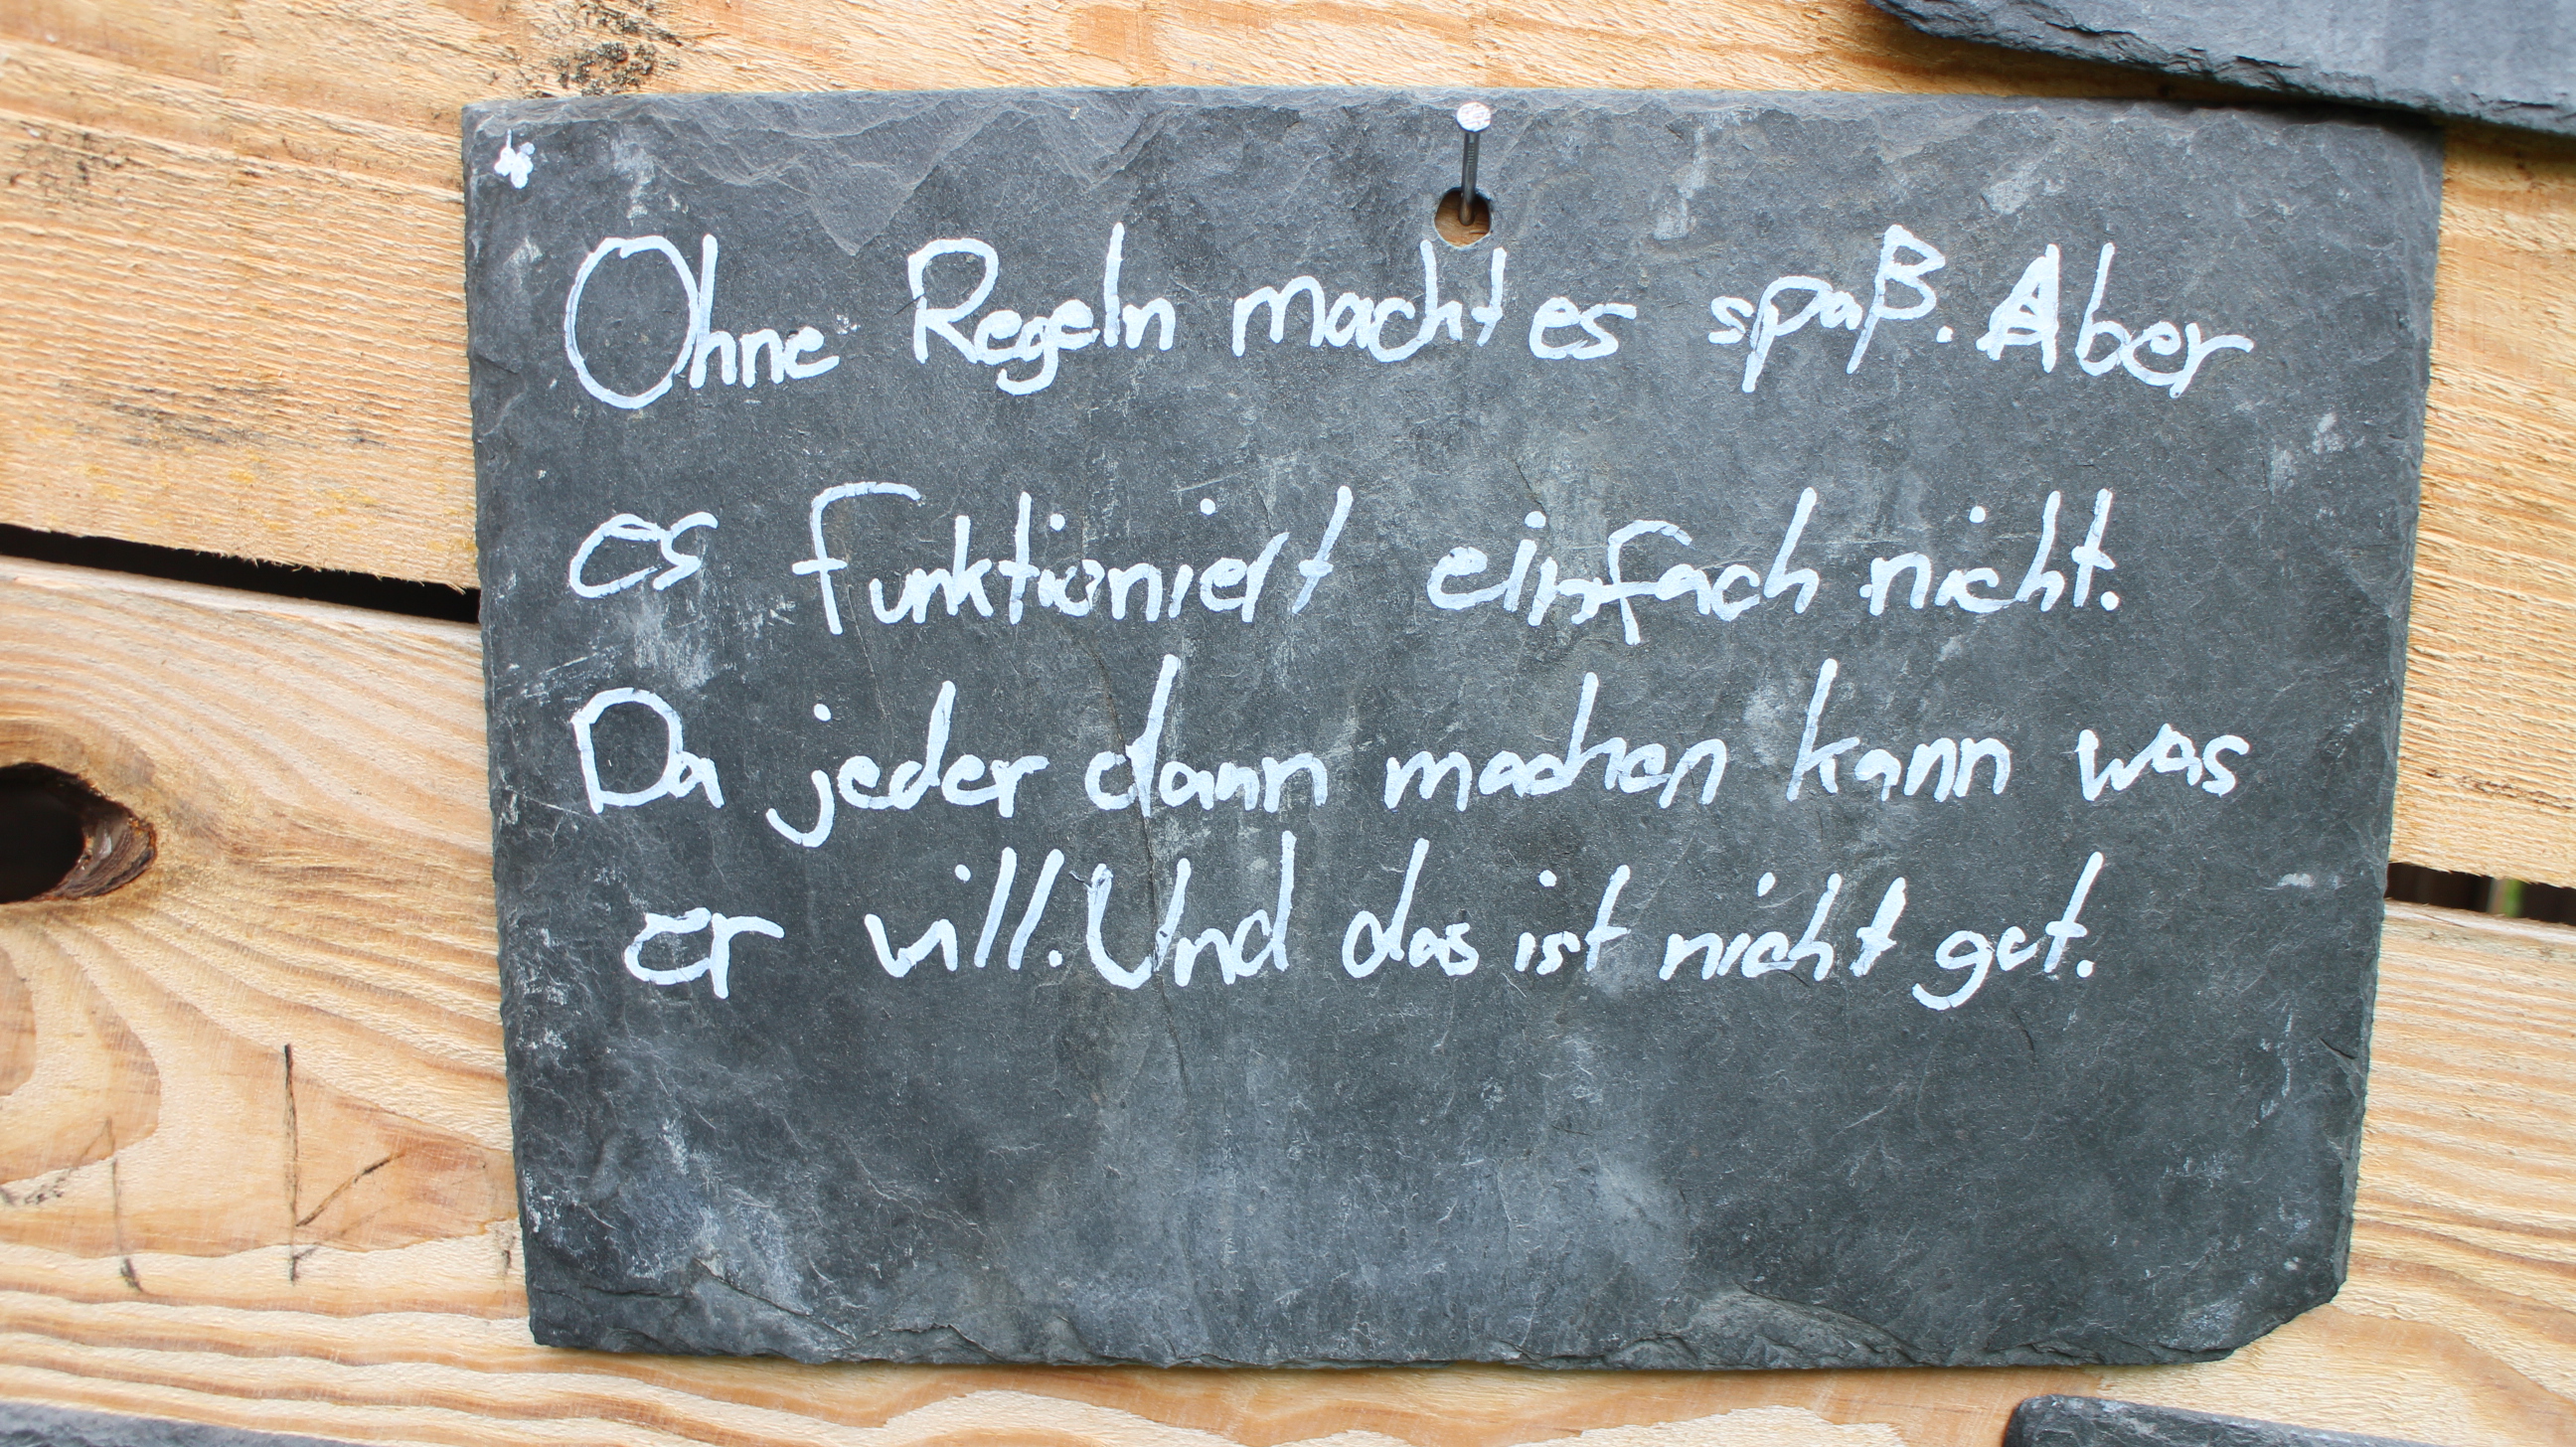 Ohne Regeln macht es spaß. Aber
es funktioniert einfach nicht.
Da jeder dann machen kann was
er will. Und das ist nicht gut.